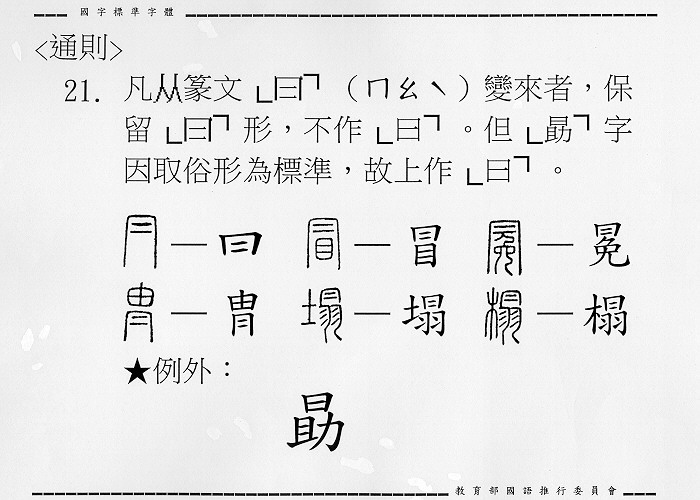 國字標準字體
<通則>
21. 凡从篆文﹂冃﹁（ㄇㄠˋ）變來者，保
留﹂冃﹁形，不作﹂曰﹁。但﹂勗﹁字
因取俗形為標準，故上作﹂曰﹁。
冃—冃 冒—冒 冕—冕
冑—冑 塌—塌 榻—榻
★例外：
勗
教育部國語推行委員會